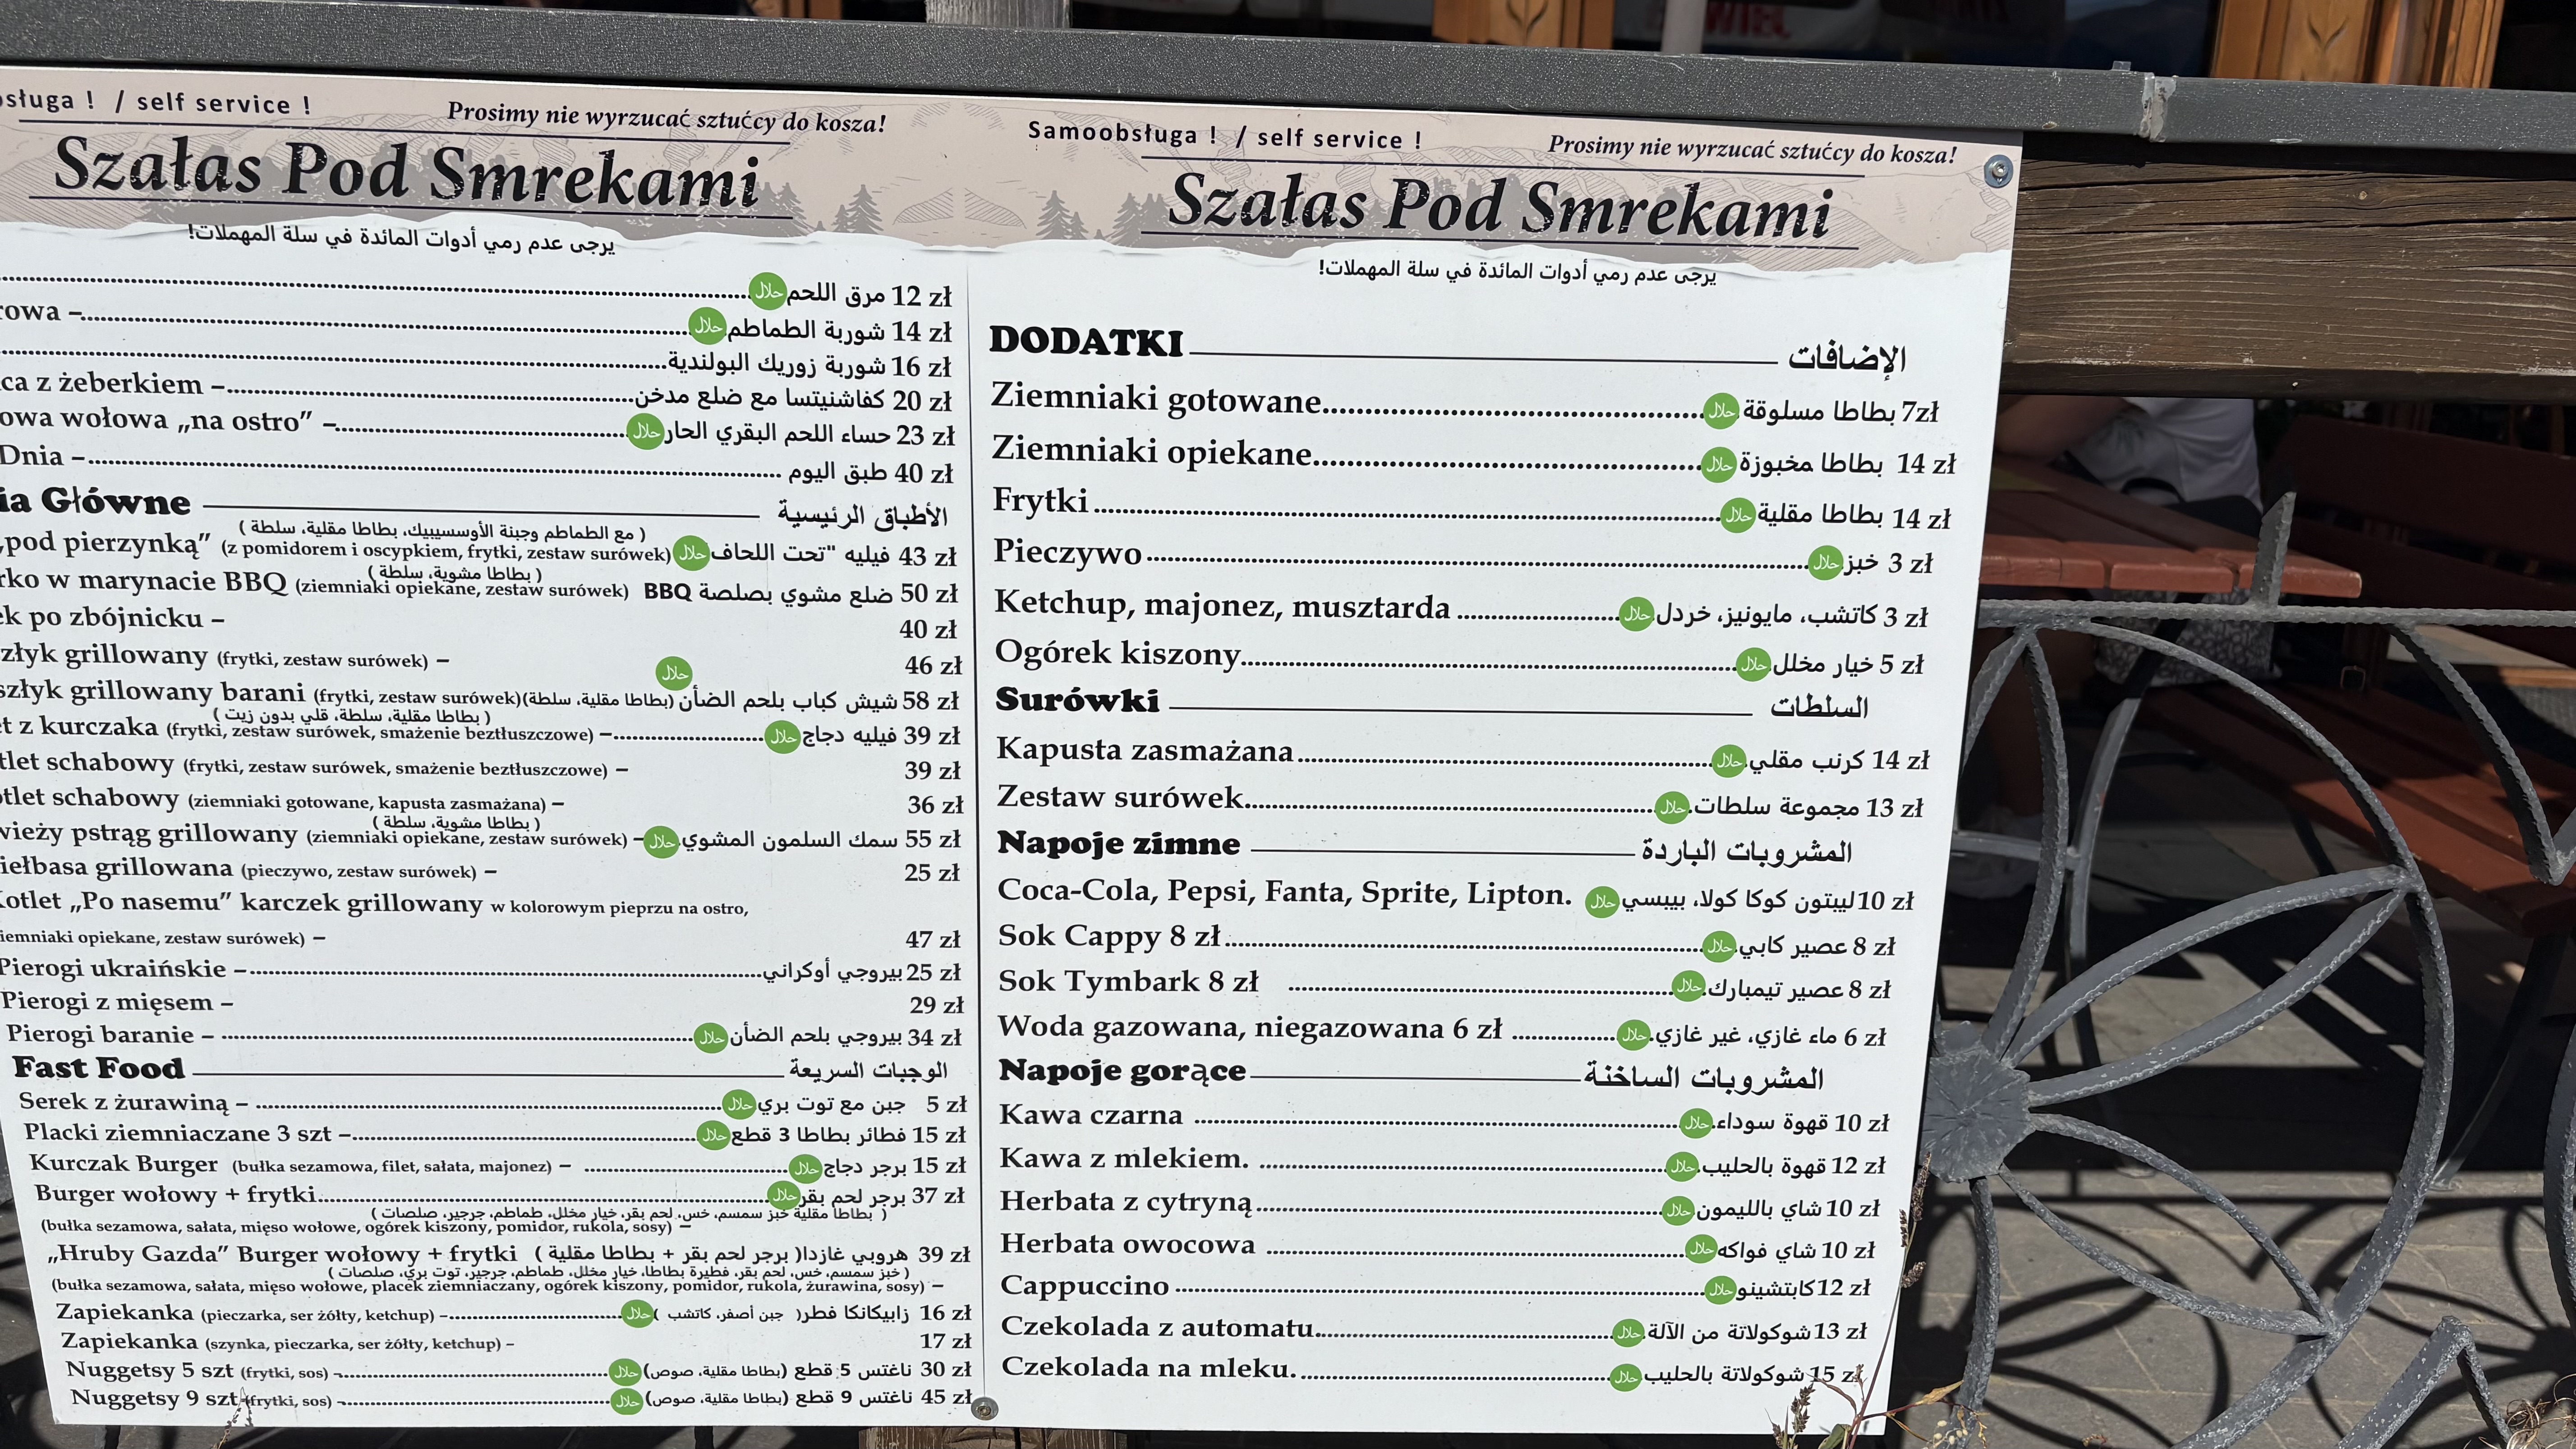 sługa ! / self service !
Prosimy nie wyrzucać sztućcy do kosza!
Szałas Pod Smrekami
يرجى عدم رمي أدوات المائدة في سلة المهملات!
حلال مرق اللحم 12 zł
rowa – حلال شوربة الطماطم 14 zł
شوربة زوريك البولندية 16 zł
ca z żeberkiem – كفاشنيتسا مع ضلع مدخن 20 zł
owa wołowa „na ostro” – حلال حساء اللحم البقري الحار 23 zł
Dnia – طبق اليوم 40 zł
ia Główne الأطباق الرئيسية
( مع الطماطم وجبنة الأوسسيبيك، بطاطا مقلية، سلطة )
„pod pierzynką” (z pomidorem i oscypkiem, frytki, zestaw surówek) حلال فيليه "تحت اللحاف 43 zł
( بطاطا مشوية، سلطة )
rko w marynacie BBQ (ziemniaki opiekane, zestaw surówek) ضلع مشوي بصلصة BBQ 50 zł
ek po zbójnicku – 40 zł
szłyk grillowany (frytki, zestaw surówek) – حلال 46 zł
szłyk grillowany barani (frytki, zestaw surówek) شيش كباب بلحم الضأن (بطاطا مقلية، سلطة) 58 zł
( بطاطا مقلية، سلطة، قلي بدون زيت )
et z kurczaka (frytki, zestaw surówek, smażenie beztłuszczowe) – حلال فيليه دجاج 39 zł
tlet schabowy (frytki, zestaw surówek, smażenie beztłuszczowe) – 39 zł
otlet schabowy (ziemniaki gotowane, kapusta zasmażana) – 36 zł
( بطاطا مشوية، سلطة )
wieży pstrąg grillowany (ziemniaki opiekane, zestaw surówek) – حلال سمك السلمون المشوي 55 zł
iełbasa grillowana (pieczywo, zestaw surówek) – 25 zł
Kotlet „Po nasemu” karczek grillowany w kolorowym pieprzu na ostro,
iemniaki opiekane, zestaw surówek) – 47 zł
Pierogi ukraińskie – بيروجي أوكراني 25 zł
Pierogi z mięsem – 29 zł
Pierogi baranie – حلال بيروجي بلحم الضأن 34 zł
Fast Food الوجبات السريعة
Serek z żurawiną – حلال جبن مع توت بري 5 zł
Placki ziemniaczane 3 szt – حلال فطائر بطاطا 3 قطع 15 zł
Kurczak Burger (bułka sezamowa, filet, sałata, majonez) – حلال برجر دجاج 15 zł
Burger wołowy + frytki حلال برجر لحم بقر 37 zł
( بطاطا مقلية خبز سمسم، خس، لحم بقر، خيار مخلل، طماطم، جرجير، صلصات )
(bułka sezamowa, sałata, mięso wołowe, ogórek kiszony, pomidor, rukola, sosy) –
„Hruby Gazda” Burger wołowy + frytki هروبي غازدا( برجر لحم بقر + بطاطا مقلية ) 39 zł
( خبز سمسم، خس، لحم بقر، فطيرة بطاطا، خيار مخلل، طماطم، جرجير، توت بري، صلصات )
(bułka sezamowa, sałata, mięso wołowe, placek ziemniaczany, ogórek kiszony, pomidor, rukola, żurawina, sosy) –
Zapiekanka (pieczarka, ser żółty, ketchup) – حلال زابيكانكا فطر( جبن أصفر، كاتشب ) 16 zł
Zapiekanka (szynka, pieczarka, ser żółty, ketchup) – 17 zł
Nuggetsy 5 szt (frytki, sos) – حلال ناغتس 5 قطع (بطاطا مقلية، صوص) 30 zł
Nuggetsy 9 szt (frytki, sos) – حلال ناغتس 9 قطع (بطاطا مقلية، صوص) 45 zł
Samoobsługa ! / self service !
Prosimy nie wyrzucać sztućcy do kosza!
Szałas Pod Smrekami
يرجى عدم رمي أدوات المائدة في سلة المهملات!
DODATKI الإضافات
Ziemniaki gotowane حلال بطاطا مسلوقة 7zł
Ziemniaki opiekane حلال بطاطا مخبوزة 14 zł
Frytki حلال بطاطا مقلية 14 zł
Pieczywo حلال خبز 3 zł
Ketchup, majonez, musztarda حلال كاتشب، مايونيز، خردل 3 zł
Ogórek kiszony حلال خيار مخلل 5 zł
Surówki السلطات
Kapusta zasmażana حلال كرنب مقلي 14 zł
Zestaw surówek حلال مجموعة سلطات 13 zł
Napoje zimne المشروبات الباردة
Coca-Cola, Pepsi, Fanta, Sprite, Lipton. حلال ليبتون كوكا كولا، بيبسي 10 zł
Sok Cappy 8 zł حلال عصير كابي 8 zł
Sok Tymbark 8 zł حلال عصير تيمبارك 8 zł
Woda gazowana, niegazowana 6 zł حلال ماء غازي، غير غازي 6 zł
Napoje gorące المشروبات الساخنة
Kawa czarna حلال قهوة سوداء 10 zł
Kawa z mlekiem. حلال قهوة بالحليب 12 zł
Herbata z cytryną حلال شاي بالليمون 10 zł
Herbata owocowa حلال شاي فواكه 10 zł
Cappuccino حلال كابتشينو 12 zł
Czekolada z automatu حلال شوكولاتة من الآلة 13 zł
Czekolada na mleku. حلال شوكولاتة بالحليب 15 zł